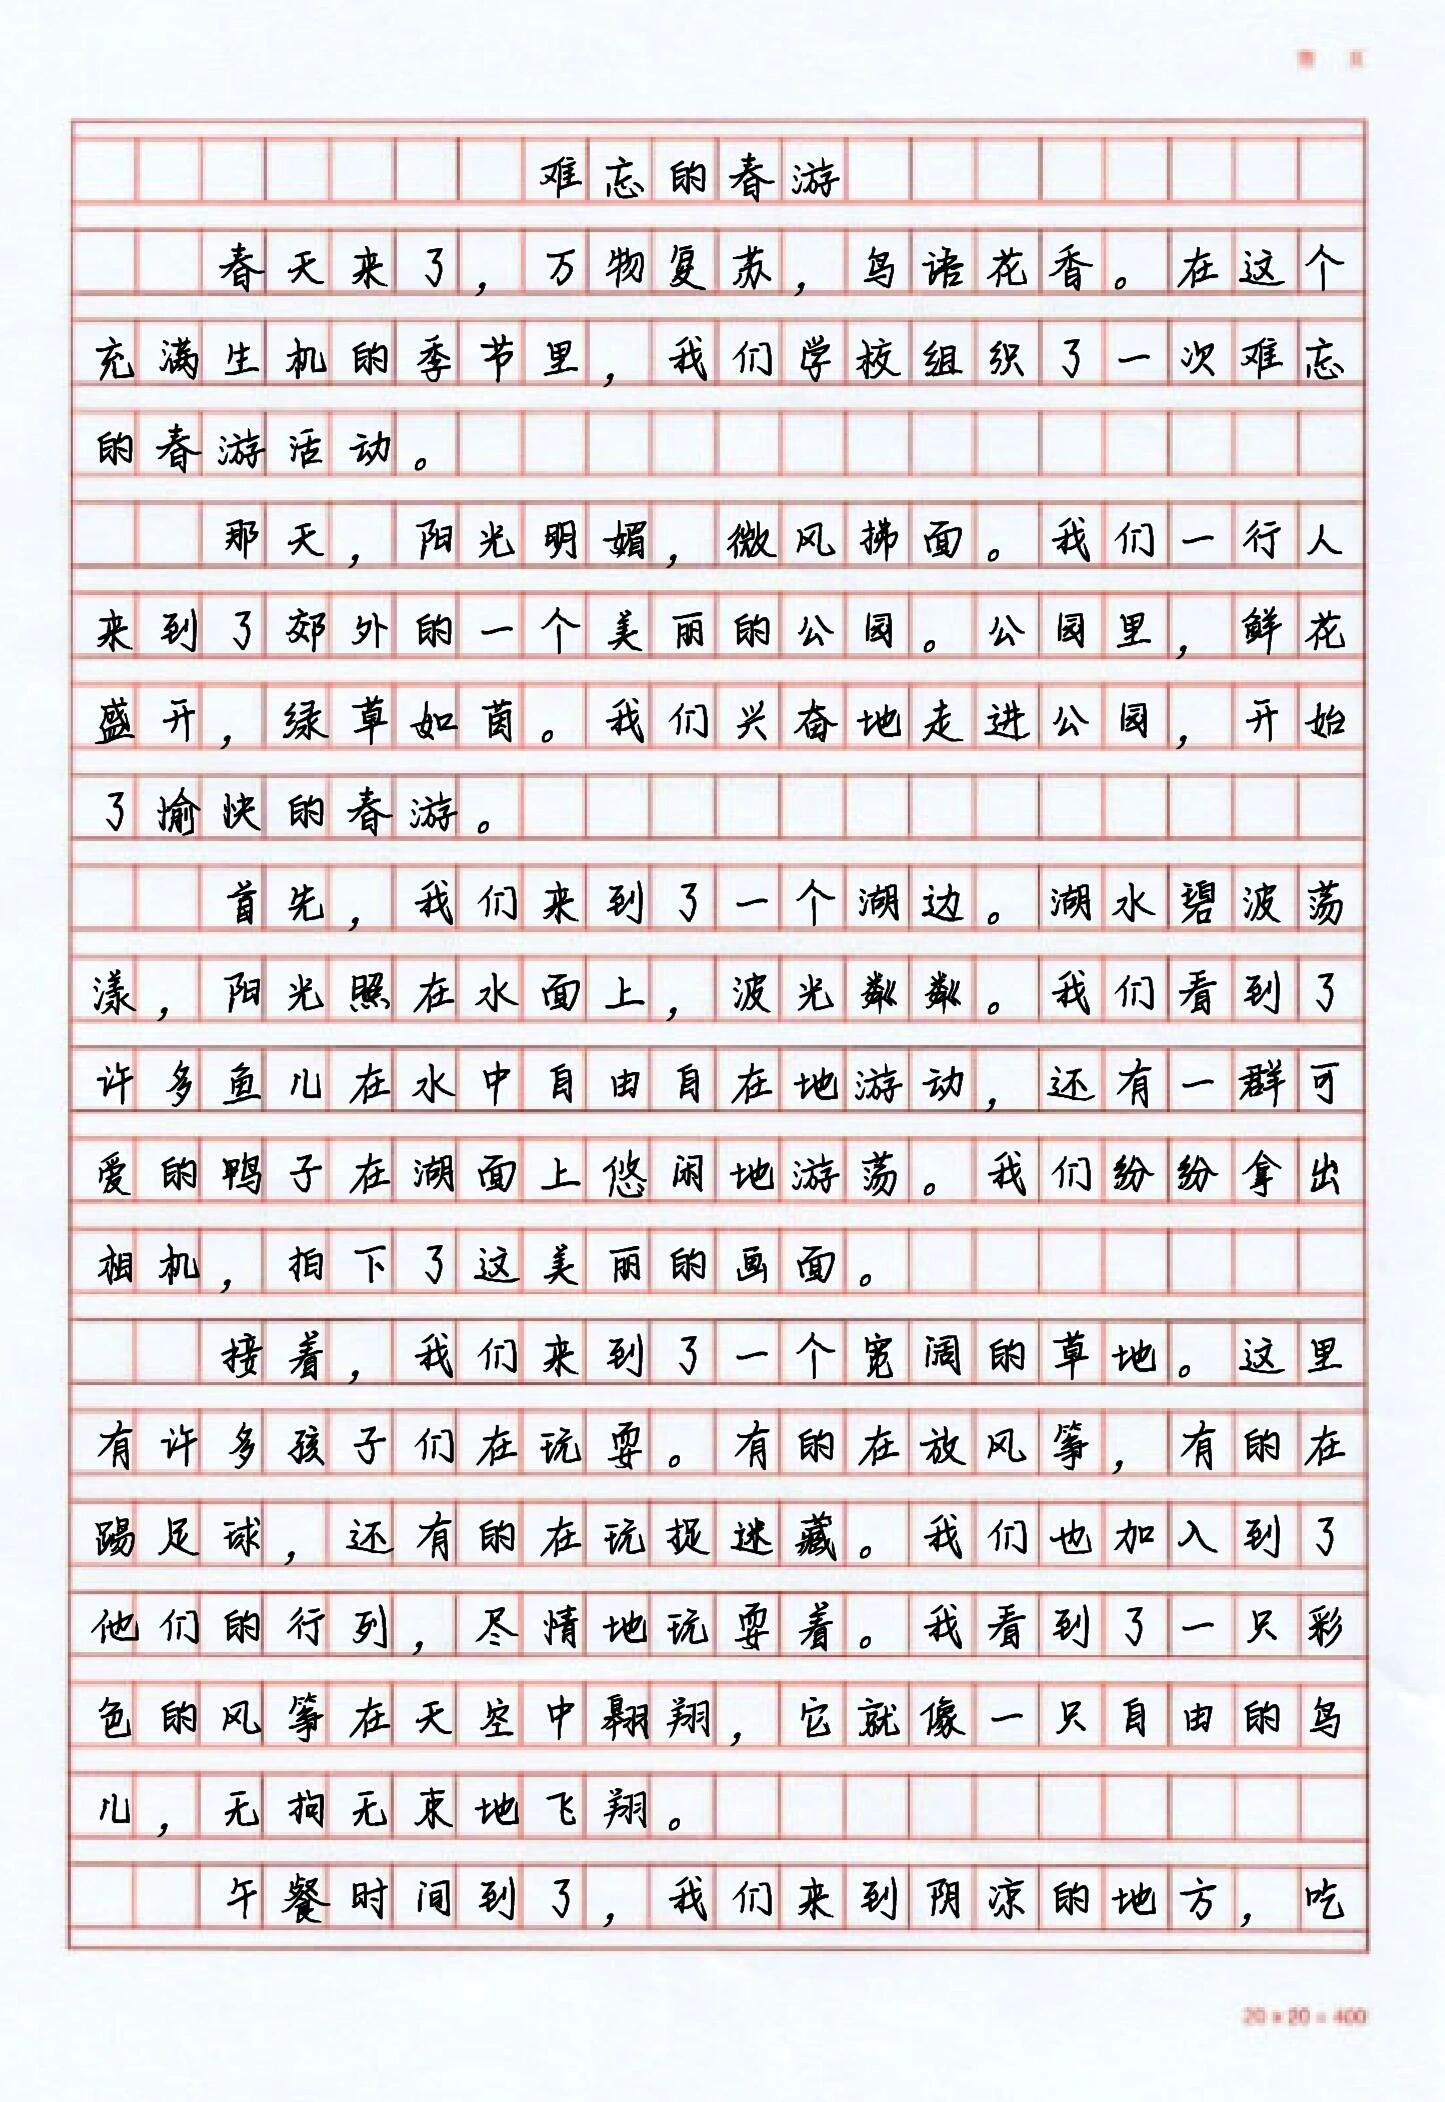 难忘的春游
春天来了，万物复苏，鸟语花香。在这个
充满生机的季节里，我们学校组织了一次难忘
的春游活动。
那天，阳光明媚，微风拂面。我们一行人
来到了郊外的一个美丽的公园。公园里，鲜花
盛开，绿草如茵。我们兴奋地走进公园，开始
了愉快的春游。
首先，我们来到了一个湖边。湖水碧波荡
漾，阳光照在水面上，波光粼粼。我们看到了
许多鱼儿在水中自由自在地游动，还有一群可
爱的鸭子在湖面上悠闲地游荡。我们纷纷拿出
相机，拍下了这美丽的画面。
接着，我们来到了一个宽阔的草地。这里
有许多孩子们在玩耍。有的在放风筝，有的在
踢足球，还有的在玩捉迷藏。我们也加入到了
他们的行列，尽情地玩耍着。我看到了一只彩
色的风筝在天空中翱翔，它就像一只自由的鸟
儿，无拘无束地飞翔。
午餐时间到了，我们来到阴凉的地方，吃
20×20=400